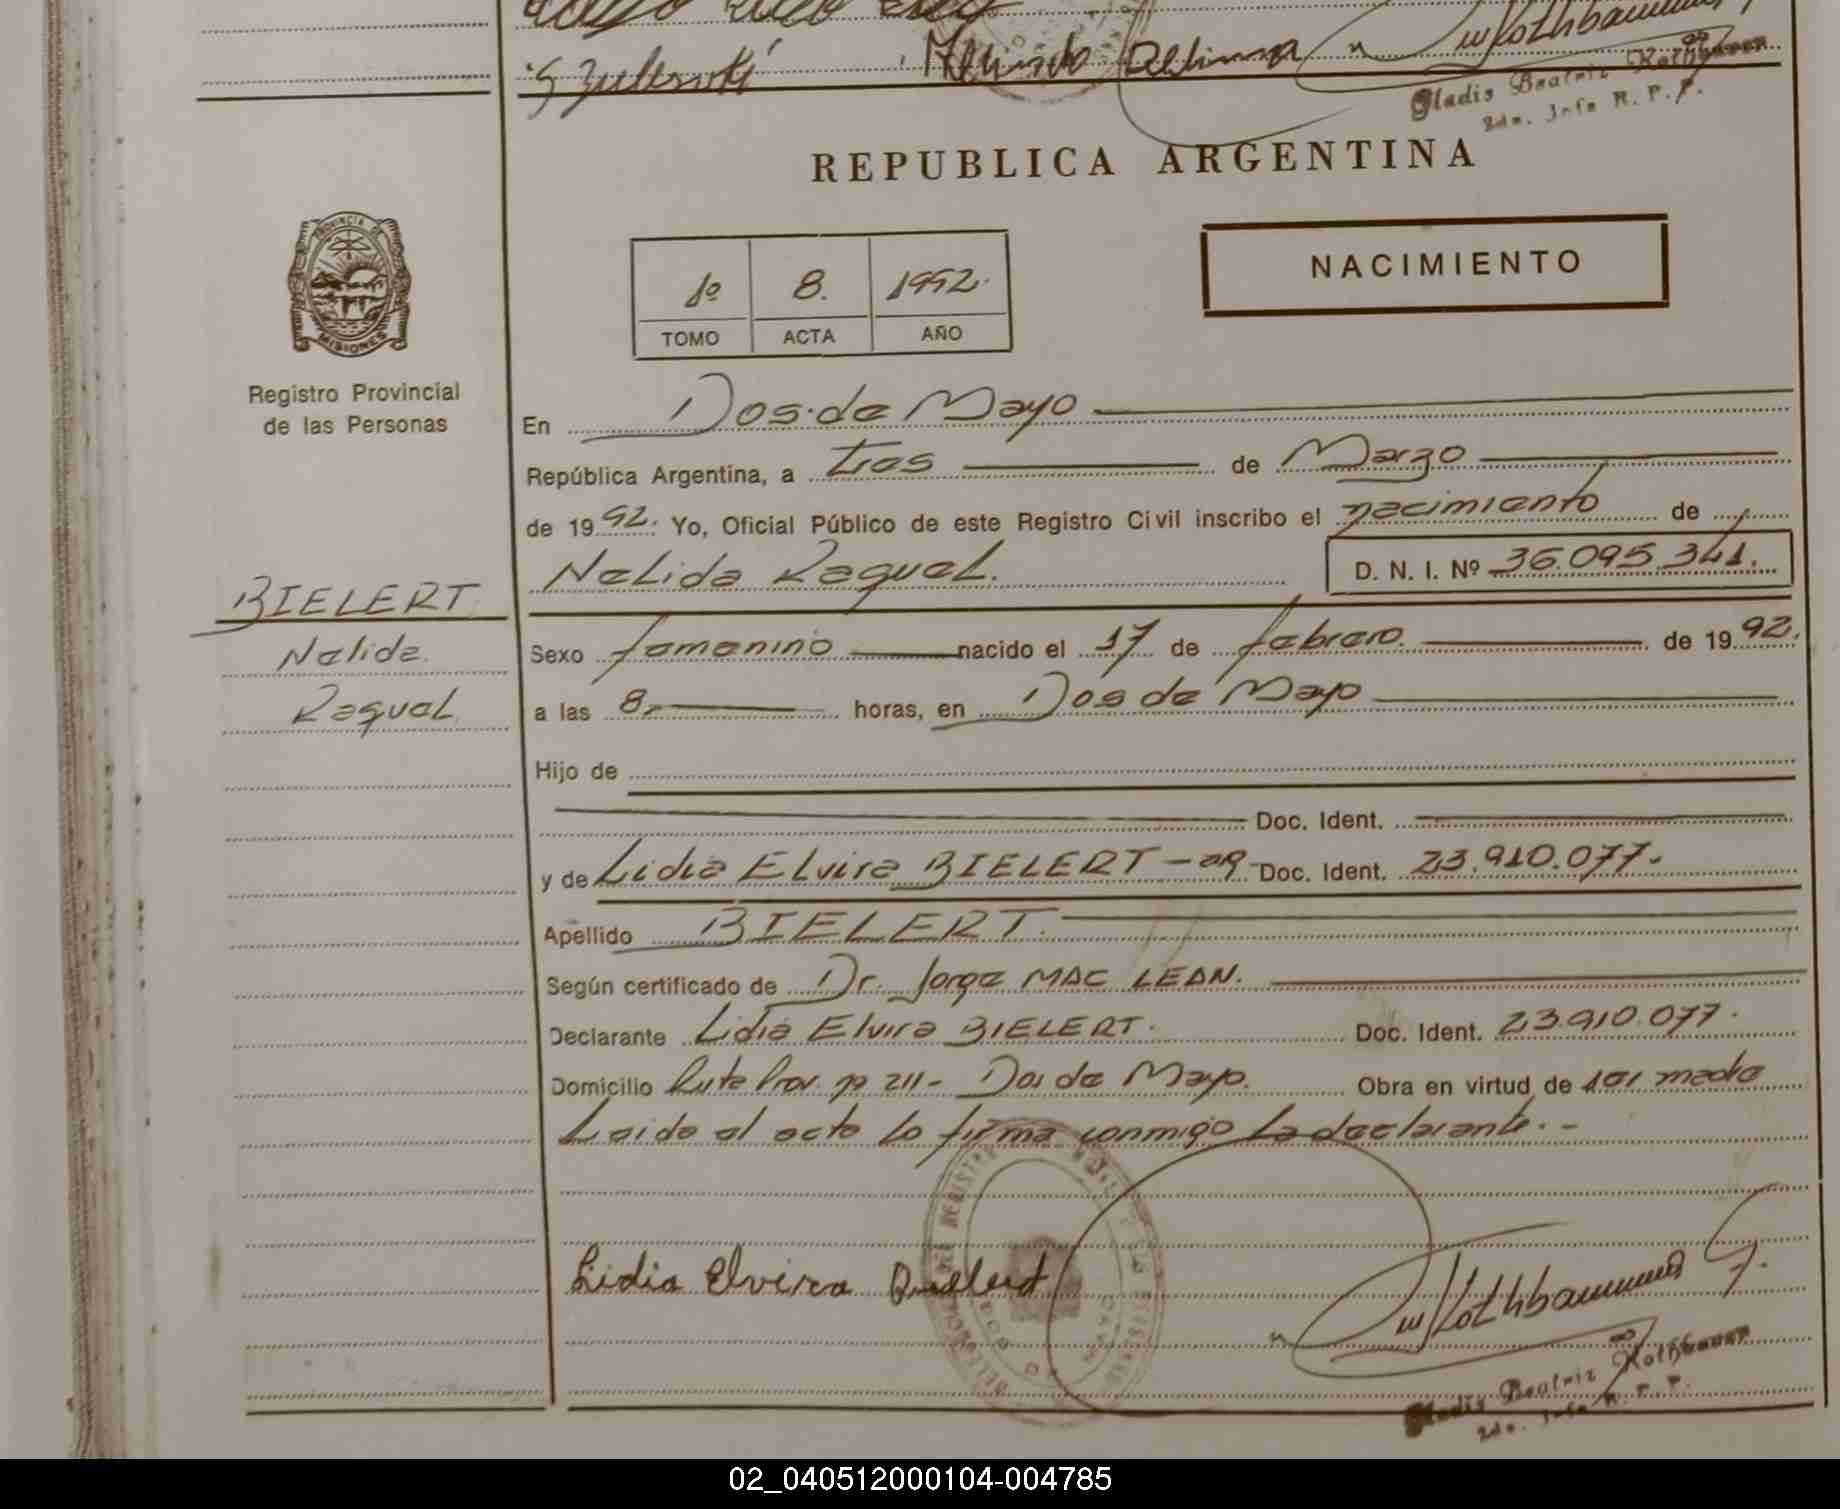 REPUBLICA ARGENTINA
PROVINCIA DE
MISIONES
1º 8. 1992.
TOMO ACTA AÑO
NACIMIENTO
Registro Provincial
de las Personas
En Dos de Mayo
República Argentina, a tres de Marzo
de 1992. Yo, Oficial Público de este Registro Civil inscribo el nacimiento de
Nelida Raquel. D. N. I. Nº 36.095.341.
BIELERT
Nelida
Raquel
Sexo femenino nacido el 17 de febrero. de 1992.
a las 8, horas, en Dos de Mayo
Hijo de
Doc. Ident.
y de Lidia Elvira BIELERT - ar - Doc. Ident. 23.910.077.
Apellido BIELERT.
Según certificado de Dr. Jorge MAC LEAN.
Declarante Lidia Elvira BIELERT. Doc. Ident. 23.910.077.
Domicilio Ruta Prov. nº 211 - Dos de Mayo. Obra en virtud de ser madre
Leida el acta la firma conmigo la declarante. -
Lidia Elvira Bielert
Gladis Beatriz
02_040512000104-004785